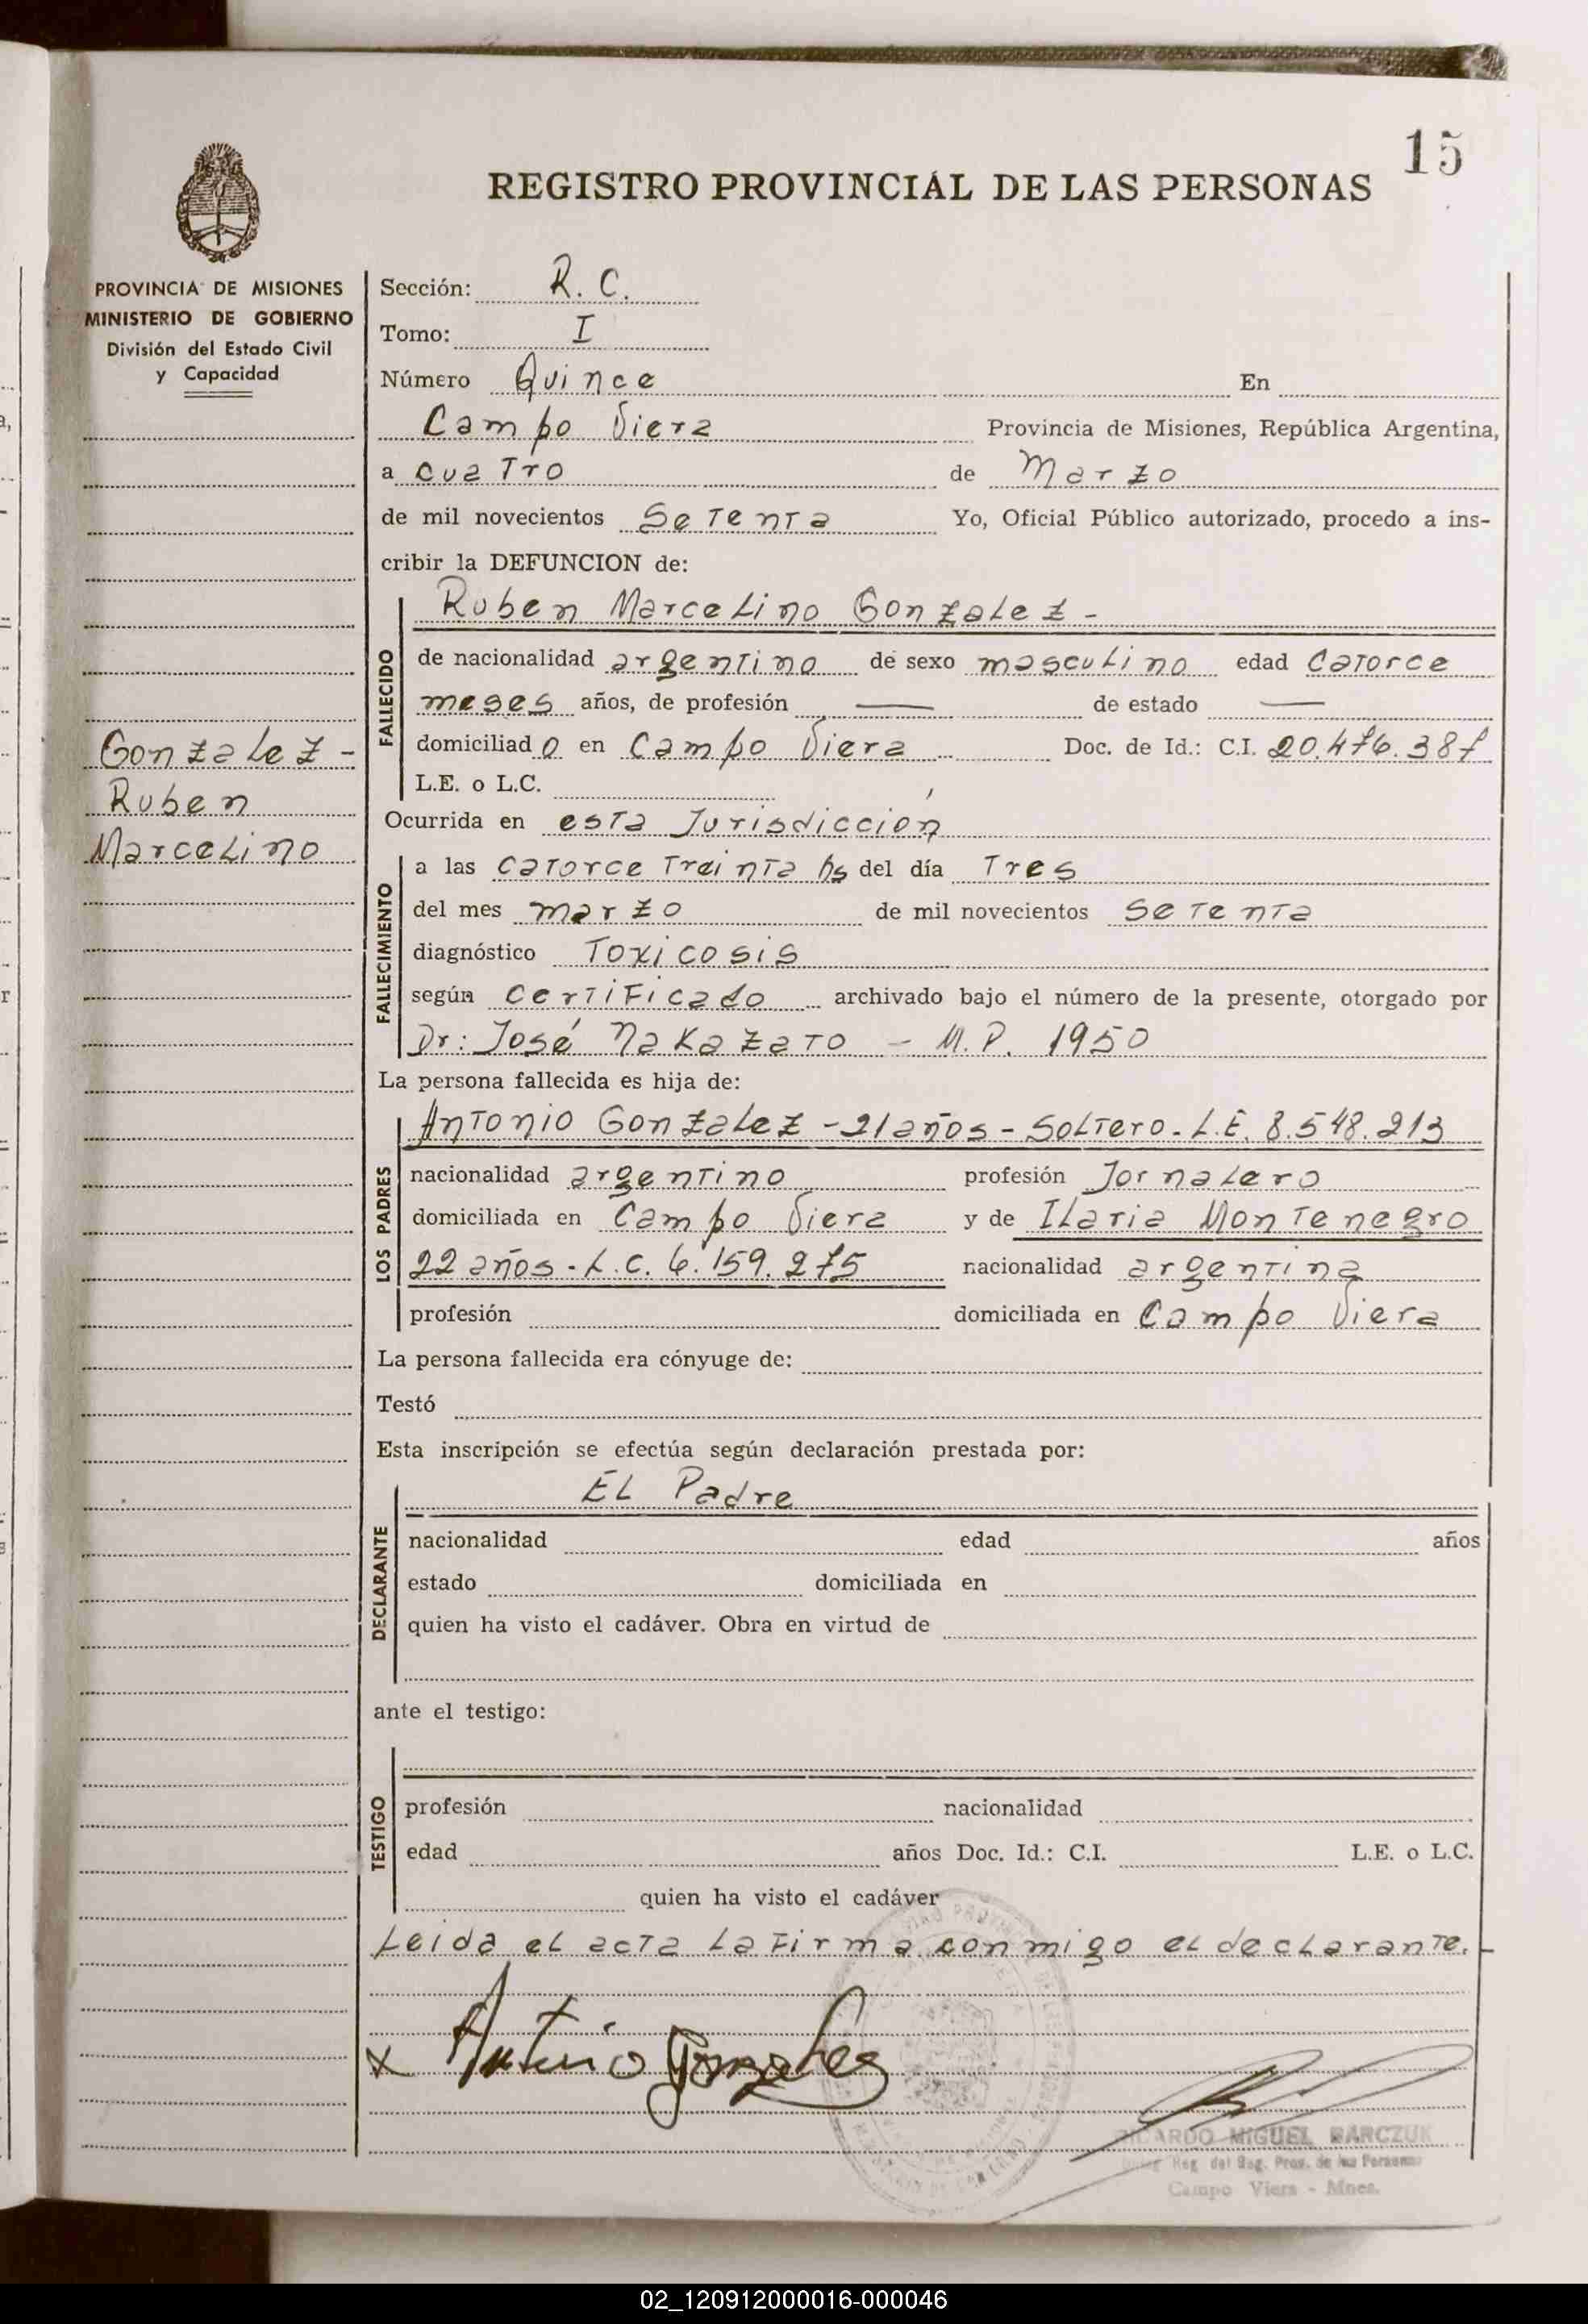 15
REGISTRO PROVINCIAL DE LAS PERSONAS
PROVINCIA DE MISIONES
MINISTERIO DE GOBIERNO
División del Estado Civil
y Capacidad
Gonzalez -
Ruben
Marcelino
Sección: R. C.
Tomo: I
Número Quince En
Campo Viera Provincia de Misiones, República Argentina,
a cuatro de Marzo
de mil novecientos Setenta Yo, Oficial Público autorizado, procedo a ins-
cribir la DEFUNCION de:
FALLECIDO
Ruben Marcelino Gonzalez -
de nacionalidad argentino de sexo masculino edad Catorce
meses años, de profesión — de estado —
domiciliado en Campo Viera Doc. de Id.: C.I. 20.476.387
L.E. o L.C.
Ocurrida en esta Jurisdicción
FALLECIMIENTO
a las catorce treinta hs del día Tres
del mes marzo de mil novecientos setenta
diagnóstico Toxicosis
según Certificado archivado bajo el número de la presente, otorgado por
Dr: José Nakazato - M. P. 1950
La persona fallecida es hija de:
LOS PADRES
Antonio Gonzalez - 21 años - Soltero - L.E. 8.548.213
nacionalidad argentino profesión Jornalero
domiciliada en Campo Viera y de Ilaria Montenegro
22 años - L.C. 6.159.275 nacionalidad argentina
profesión domiciliada en Campo Viera
La persona fallecida era cónyuge de:
Testó
Esta inscripción se efectúa según declaración prestada por:
DECLARANTE
El Padre
nacionalidad edad años
estado domiciliada en
quien ha visto el cadáver. Obra en virtud de
ante el testigo:
TESTIGO
profesión nacionalidad
edad años Doc. Id.: C.I. L.E. o L.C.
quien ha visto el cadáver
Leida el acta la firma conmigo el declarante. -
x Antonio Gonzalez
RICARDO MIGUEL BARCZUK
Reg. del Reg. Prov. de las Personas
Campo Viera - Mnes.
02_120912000016-000046